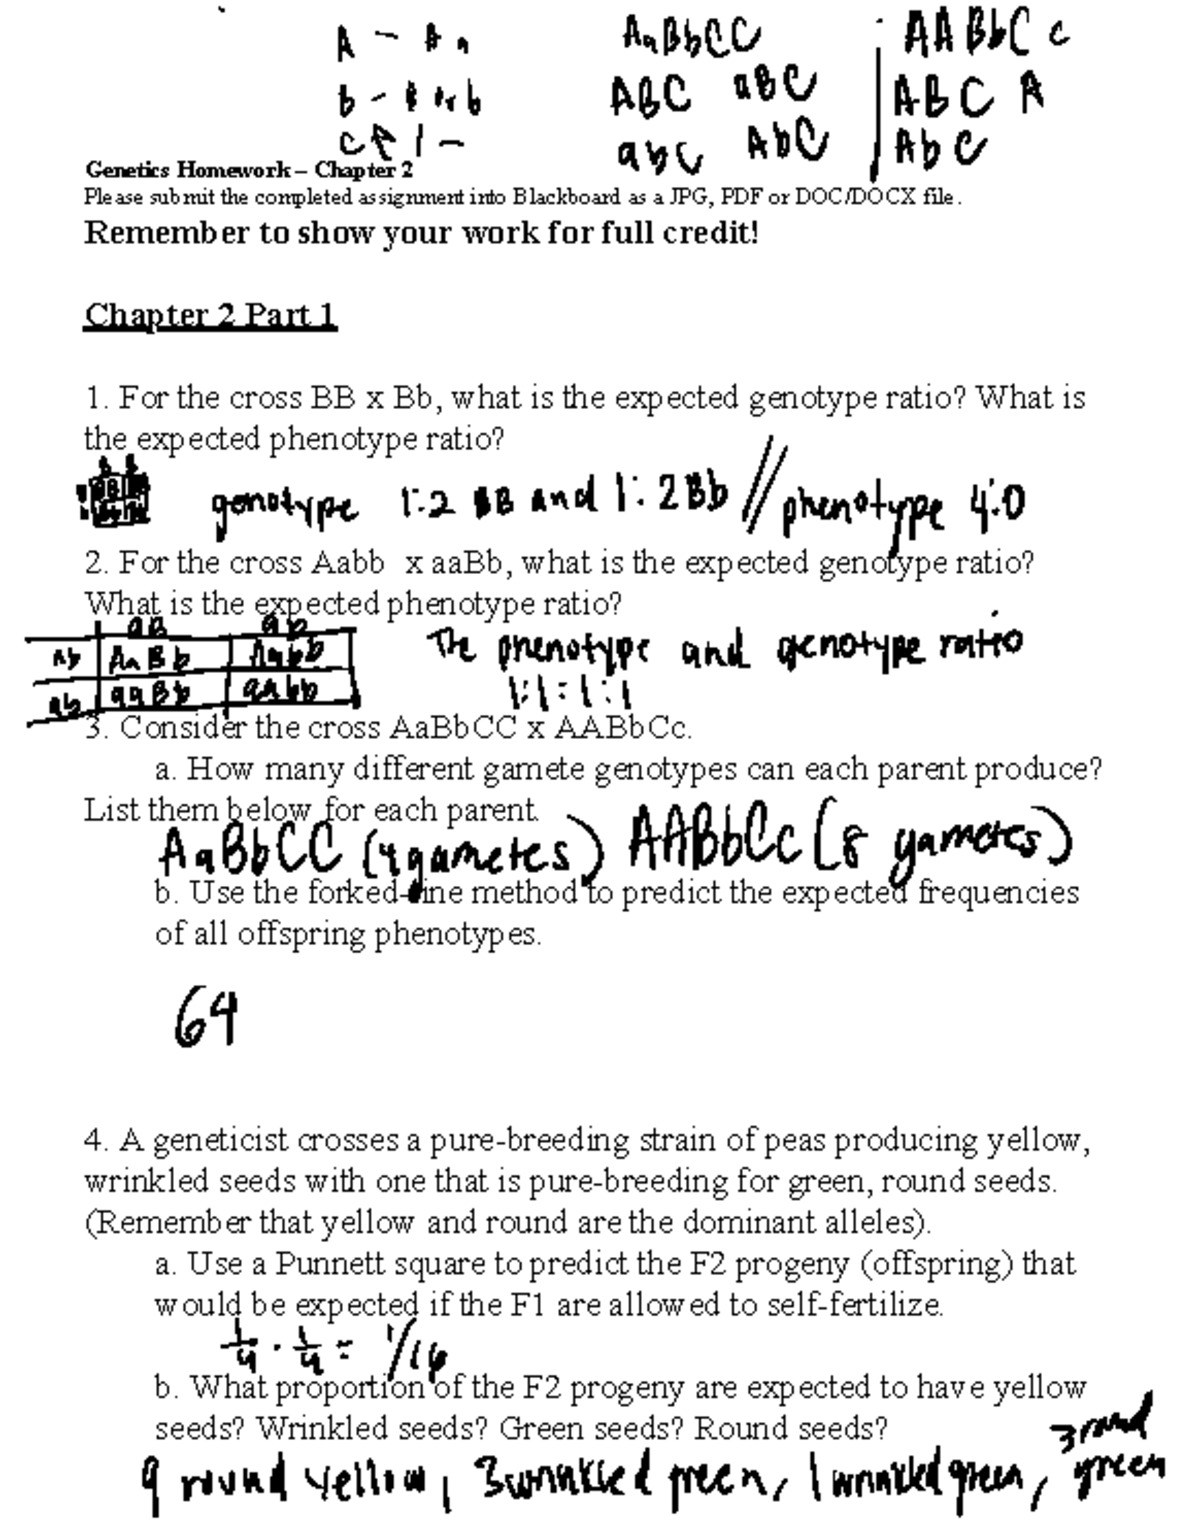 A - A a AaBbCC AABbCc
b - B or b ABC aBC ABC A
C 1 - abC AbC AbC
Genetics Homework – Chapter 2
Please submit the completed assignment into Blackboard as a JPG, PDF or DOC/DOCX file.
Remember to show your work for full credit!
Chapter 2 Part 1
1. For the cross BB x Bb, what is the expected genotype ratio? What is
the expected phenotype ratio?
genotype 1:2 BB and 1:2Bb // phenotype 4:0
2. For the cross Aabb x aaBb, what is the expected genotype ratio?
What is the expected phenotype ratio?
aB ab
Ab AaBb Aabb The phenotype and genotype ratio
ab aaBb aabb 1:1:1:1
3. Consider the cross AaBbCC x AABbCc.
a. How many different gamete genotypes can each parent produce?
List them below for each parent.
AaBbCC (4 gametes) AABbCc (8 gametes)
b. Use the forked-line method to predict the expected frequencies
of all offspring phenotypes.
64
4. A geneticist crosses a pure-breeding strain of peas producing yellow,
wrinkled seeds with one that is pure-breeding for green, round seeds.
(Remember that yellow and round are the dominant alleles).
a. Use a Punnett square to predict the F2 progeny (offspring) that
would be expected if the F1 are allowed to self-fertilize.
1/4 · 1/4 = 1/16
b. What proportion of the F2 progeny are expected to have yellow
seeds? Wrinkled seeds? Green seeds? Round seeds?
9 round yellow, 3 wrinkled green, 1 wrinkled green, 3 round green